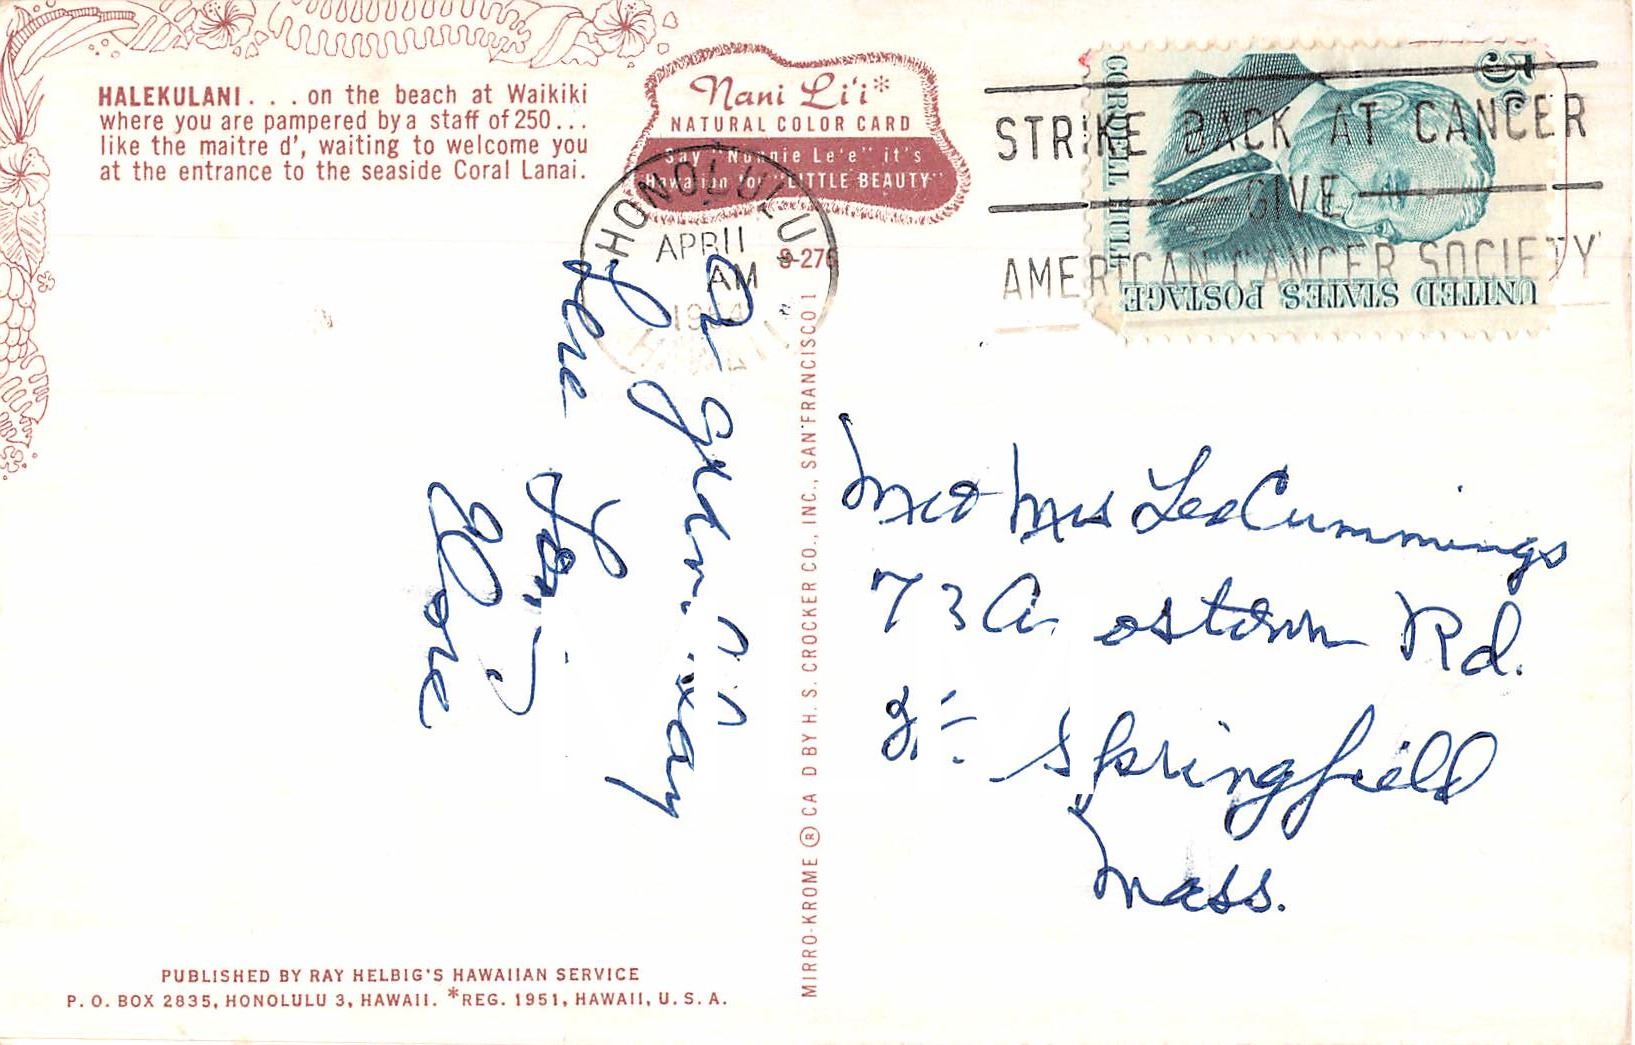 HALEKULANI . . . on the beach at Waikiki
where you are pampered by a staff of 250 . . .
like the maitre d', waiting to welcome you
at the entrance to the seaside Coral Lanai.
Nani Li'i*
NATURAL COLOR CARD
Say "Nonnie Le'e" it's
Hawaiian for "LITTLE BEAUTY"
HONOLULU
APR 11
AM
1964
HAWAII
S-276
STRIKE BACK AT CANCER
GIVE
AMERICAN CANCER SOCIETY
5c
CORDELL HULL
UNITED STATES POSTAGE
Here
Love
Mr & Mrs Leo Cummings
73 A ostown Rd.
Springfield
Mass.
MIRRO-KROME ® CA D BY H. S. CROCKER CO., INC., SAN FRANCISCO 1
PUBLISHED BY RAY HELBIG'S HAWAIIAN SERVICE
P. O. BOX 2835, HONOLULU 3, HAWAII. *REG. 1951, HAWAII, U. S. A.